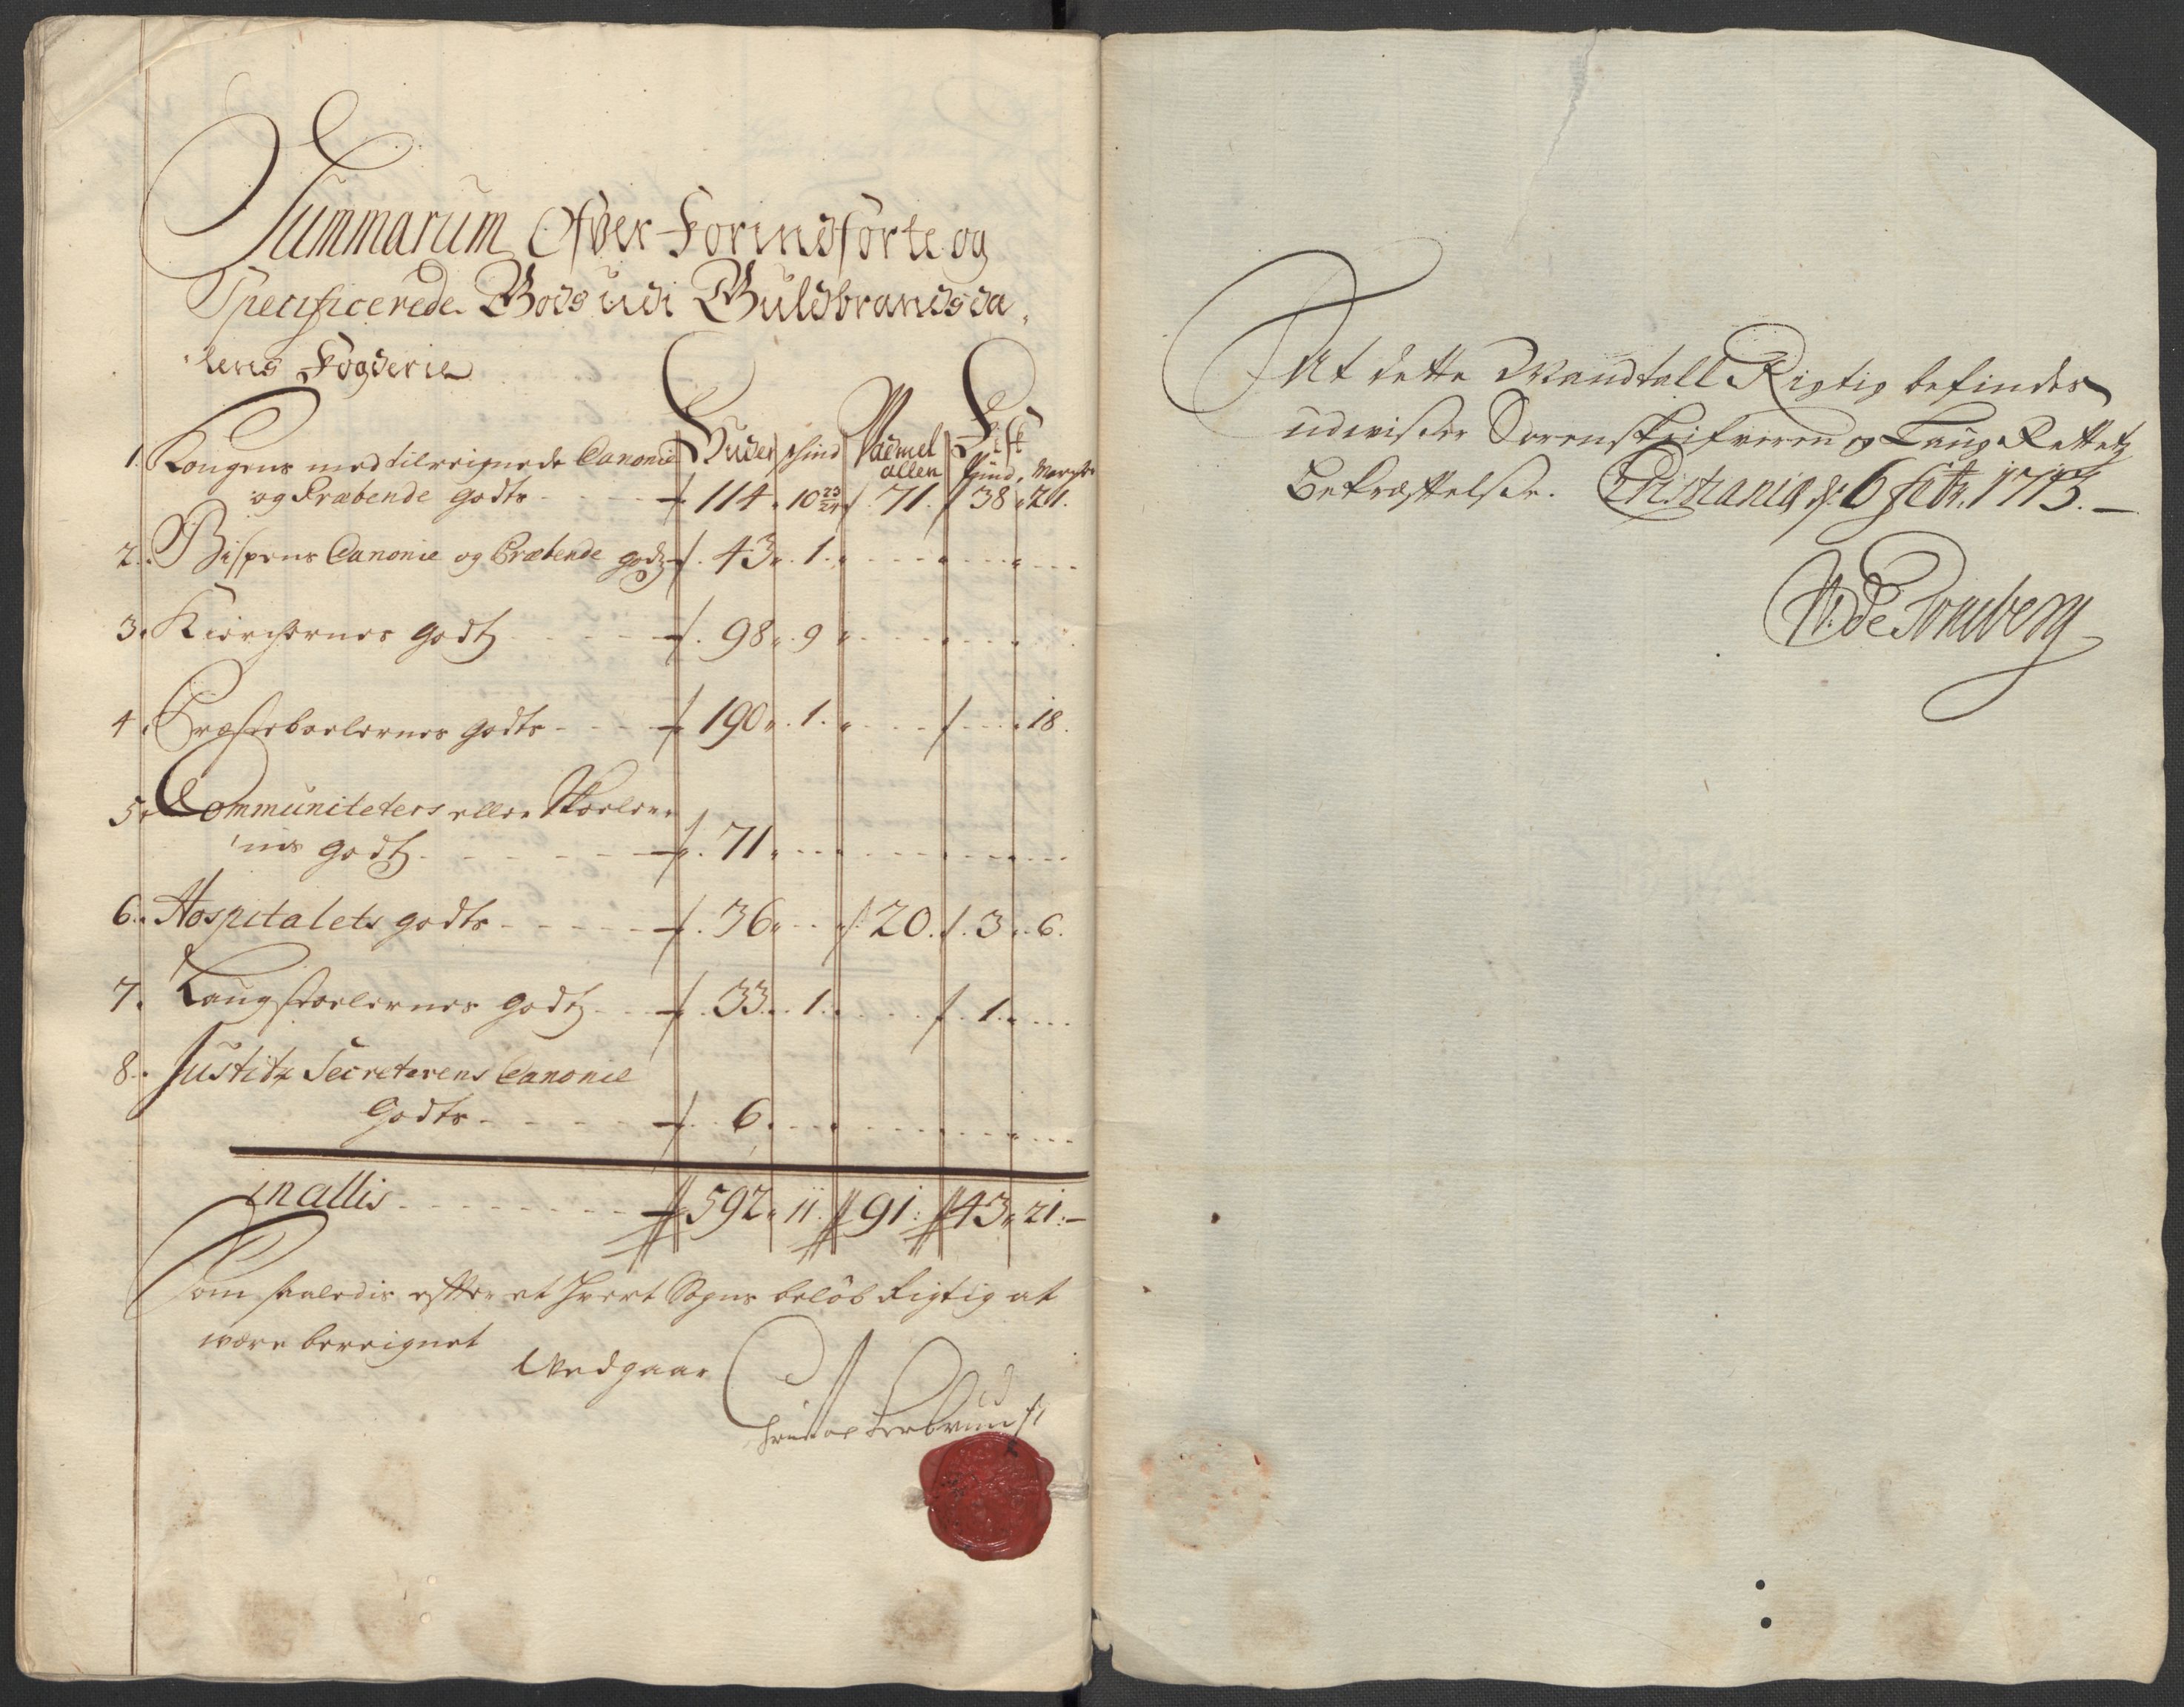 Summarum Ofver Forindförte og
Specificerede Gods udi Guldbrandsda,
lens Fogderie
Huder Skind Vadmel allen Fisk Pund, Marcher
1. Kongens med tilneignede Canonie
og Præbende godts - 114. 10 23/24 71. 38 21.
2. Bispens Canonie og Præbende godtz 43. 1.
3. Kierchernes godtz 98. 9
4. Præsteboelernes godts 190. 1. 18.
5. Communitetets eller Skoeler
nis godtz 71
6. Hospitalets godts 36 20. 3. 6.
7. Laugstoelernes godtz 33. 1. 1.
8. Justitz Secreterens Canonie
Godts 6.
In allis 592. 11. 91. 43. 21.
Som saaledis efter et hvert Sogns beløb Rigtig at
være bereignet
Vedgaar
At dette Mandtall Rigtig befindes
udviser Sorenskrifveren og Laug Rettetz
Bekræftelse. Cristania d. 6 febr. 1713.